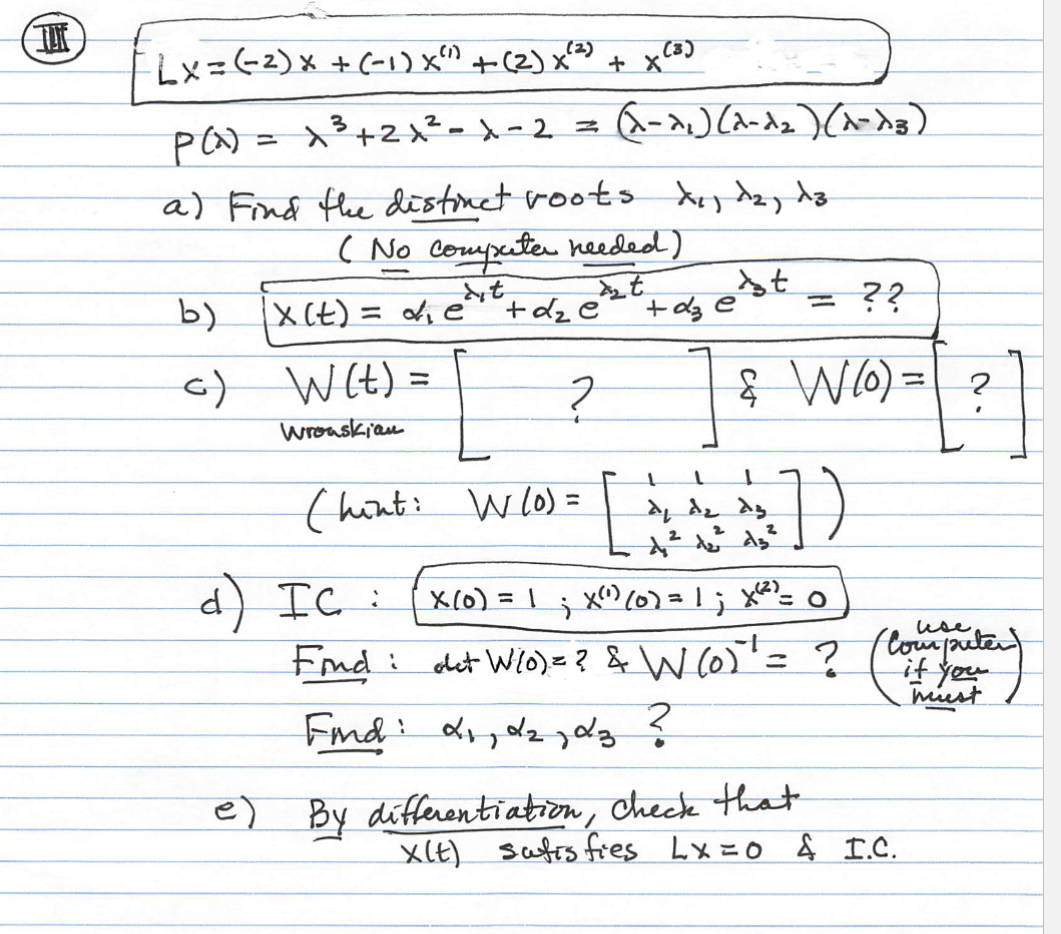 III
Lx = (-2) x + (-1) x⁽¹⁾ + (2) x⁽²⁾ + x⁽³⁾
P(λ) = λ³ + 2λ² - λ - 2 = (λ-λ₁)(λ-λ₂)(λ-λ₃)
a) Find the distinct roots λ₁, λ₂, λ₃
( No computer needed )
b) x(t) = α₁ e^{λ₁t} + α₂ e^{λ₂t} + α₃ e^{λ₃t} = ??
c) W(t) = [ ? ] & W(0) = [ ? ]
Wronskian
(hint: W(0) = [ 1 1 1
λ₁ λ₂ λ₃
λ₁² λ₂² λ₃² ] )
d) IC : x(0) = 1 ; x⁽¹⁾(0) = 1 ; x⁽²⁾ = 0
Find : det W(0) = ? & W(0)⁻¹ = ? (use computer if you must)
Find : α₁, α₂, α₃ ?
e) By differentiation, check that
x(t) satisfies Lx = 0 & I.C.